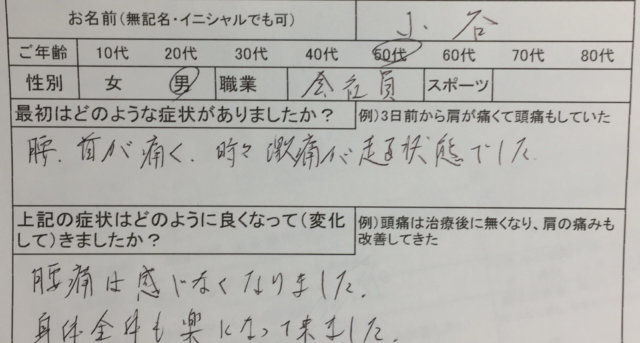 お名前(無記名・イニシャルでも可) 小谷
ご年齢 10代 20代 30代 40代 50代 60代 70代 80代
性別 女 男 職業 会社員 スポーツ
最初はどのような症状がありましたか? 例)3日前から肩が痛くて頭痛もしていた
腰、首が痛く、時々激痛が走る状態でした。
上記の症状はどのように良くなって(変化して)きましたか? 例)頭痛は治療後に無くなり、肩の痛みも改善してきた
腰痛は感じなくなりました。
身体全体も楽になって来ました。